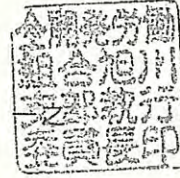 全開発労働
組合旭川
支部執行
委員長印